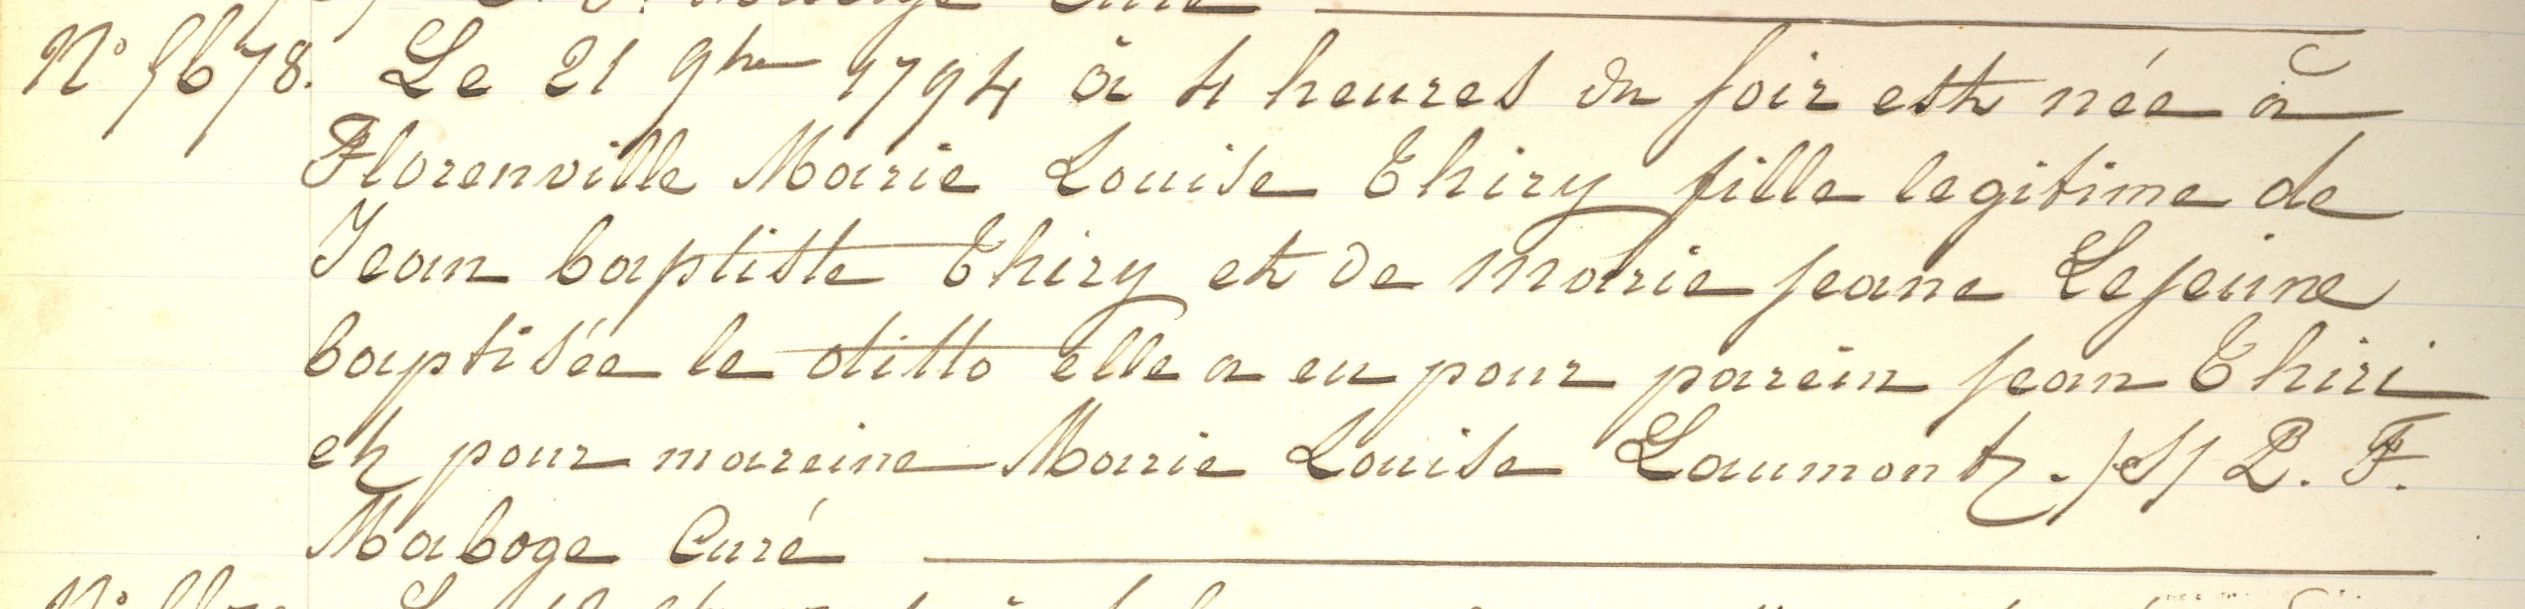 N° 5678. Le 21 9bre 1794 à 4 heures du soir est née à
Florenville Marie Louise Thiry fille legitime de
Jean baptiste Thiry et de marie jeane Lejeune
baptisée le ditto elle a eu pour parein jean Thiri
et pour mareine Marie Louise Laumont. /S/ P. F.
Maboge Curé